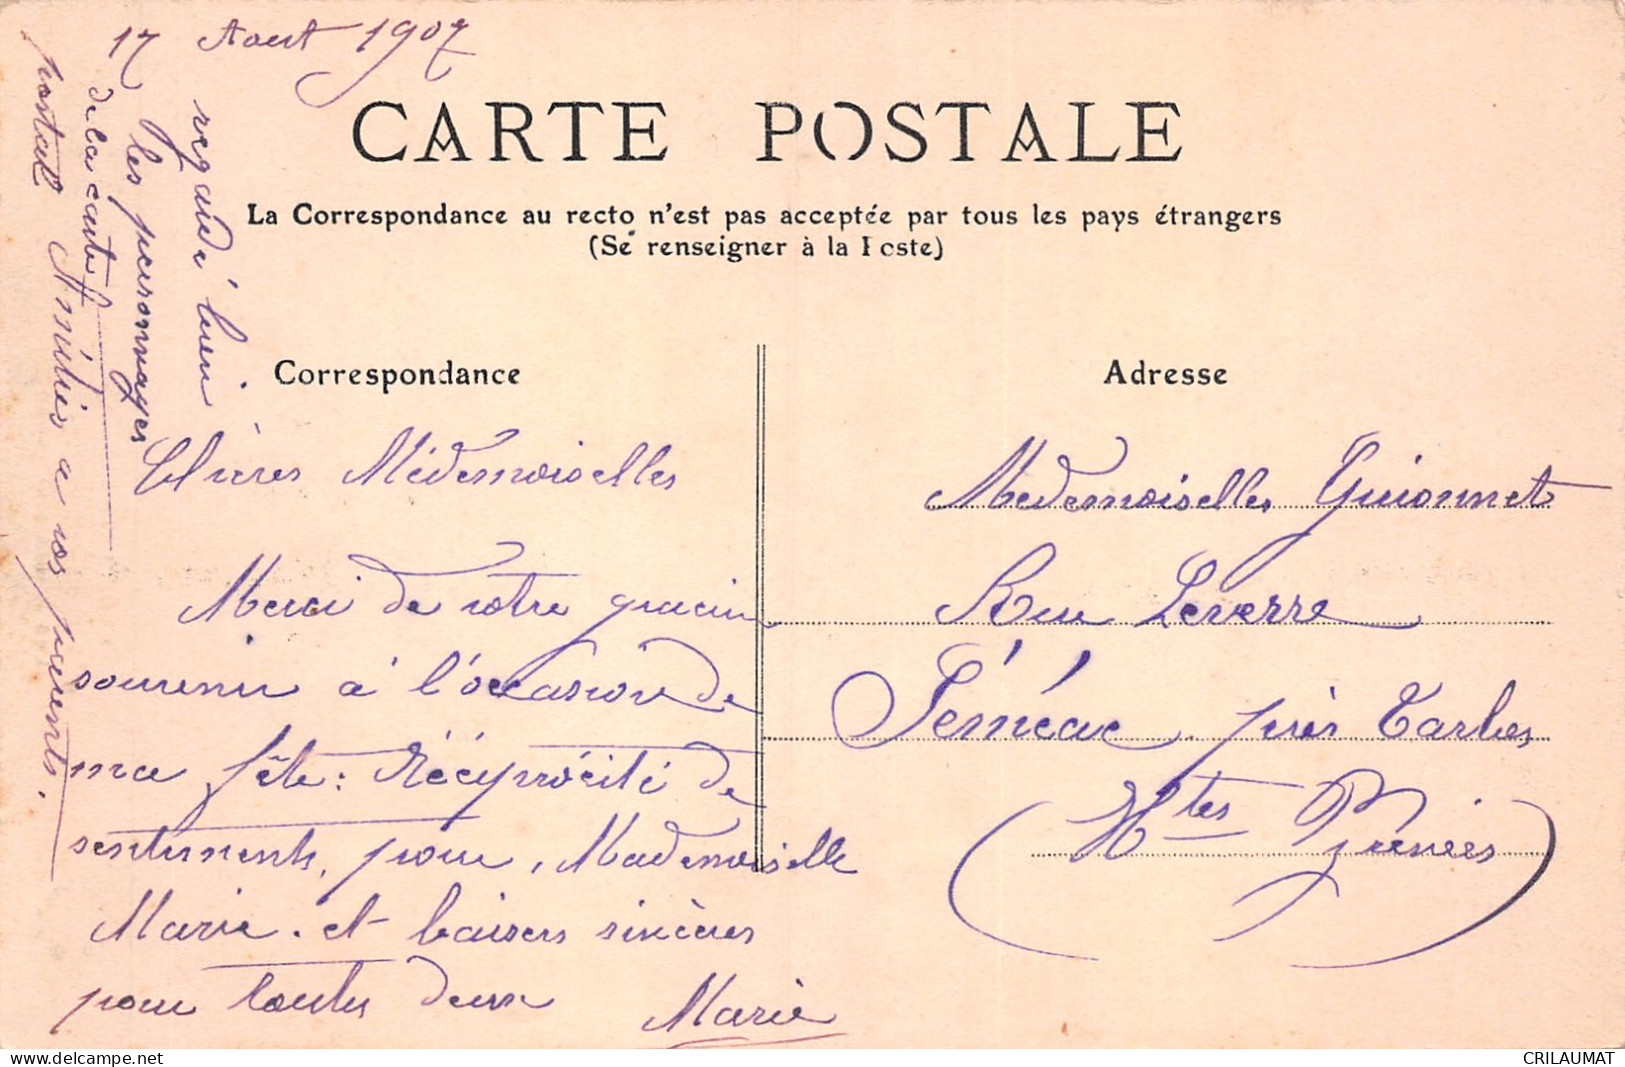 17 Aout 1907
CARTE POSTALE
La Correspondance au recto n'est pas acceptée par tous les pays étrangers
(Se renseigner à la Poste)
Correspondance
Adresse
Chères Médemoiselles
Merci de votre gracieux
souvenir à l'occasion de
ma fête: Réciprocité de
sentiments, pour, Mademoiselle
Marie. et baisers sincères
pour toutes deux
Marie
regardé bien
les personnages
de la carte
postale Amitiés a vos parents.
Medemoiselles Guionnet
Rue Leverre
Séméac près Tarbes
(Htes Pyrénées)
delcampe.net
CRILAUMAT